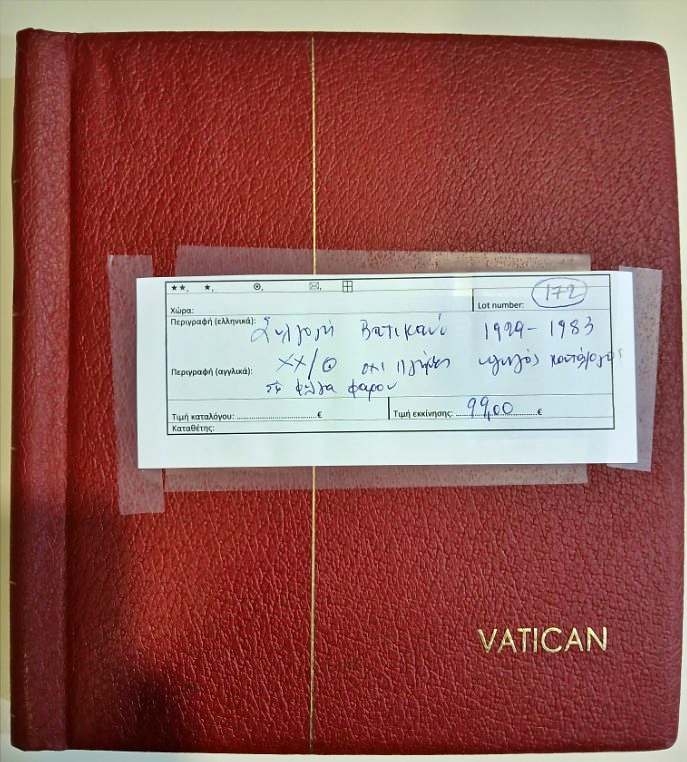 ★★, ★, ⊙, ✉, ⊞
Χώρα: Lot number: 172
Περιγραφή (ελληνικά): Συλλογή Βατικανό 1929 - 1983
Περιγραφή (αγγλικά): ××/⊙ όχι πλήρης υψηλός κατάλογος
σε φύλλα φάρου
Τιμή καταλόγου: ................................€ Τιμή εκκίνησης: ....99,00....€
Καταθέτης:
VATICAN